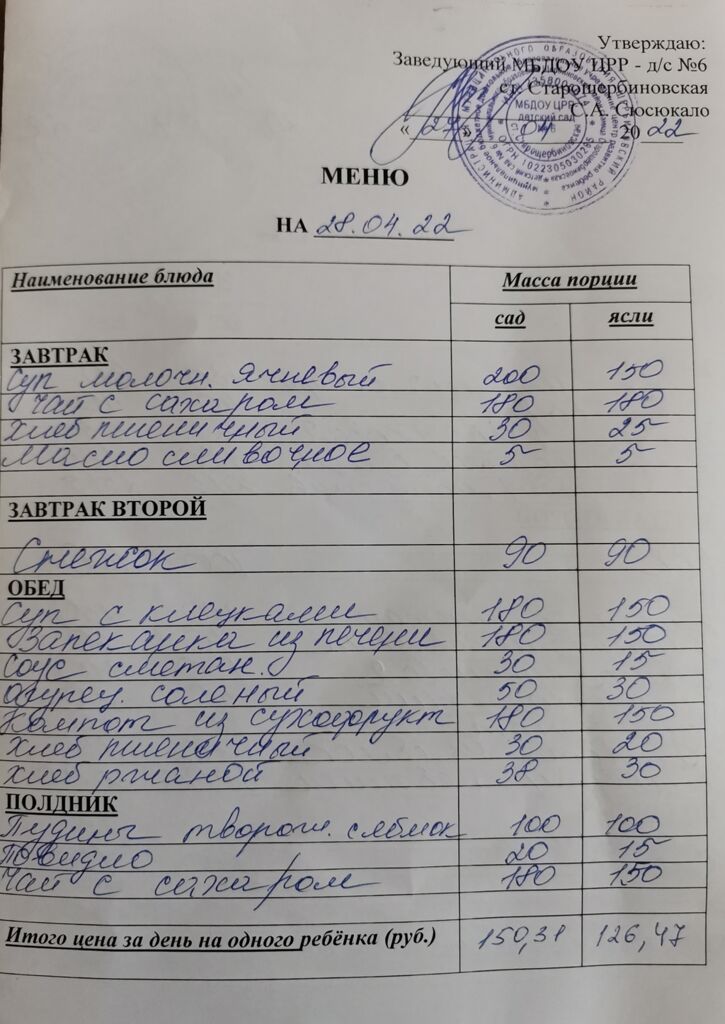 Утверждаю:
Заведующий МБДОУ ЦРР - д/с №6
ст. Старощербиновская
С.А. Сюсюкало
« 27 » 04 20 22
МЕНЮ
НА 28.04.22
Наименование блюда Масса порции
сад ясли
ЗАВТРАК
Суп молочн. ячневый 200 150
Чай с сахаром 180 180
Хлеб пшеничный 30 25
Масло сливочное 5 5
ЗАВТРАК ВТОРОЙ
Снежок 90 90
ОБЕД
Суп с клецками 180 150
Запеканка из печени 180 150
Соус сметан. 30 15
Огурец соленый 50 30
Компот из сухофрукт 180 150
Хлеб пшеничный 30 20
Хлеб ржаной 38 30
ПОЛДНИК
Пудинг творож. с яблок 100 100
Повидло 20 15
Чай с сахаром 180 150
Итого цена за день на одного ребёнка (руб.) 150,31 126,47
МБДОУ ЦРР
детский сад
ст. Старощербиновская
ОГРН 1022305030295